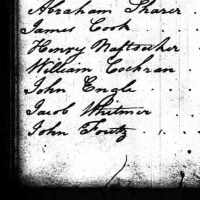 Abraham Sharer
James Cook
Henry Naftsecher
William Cochran
John Engle
Jacob Whitmer
John Foutz